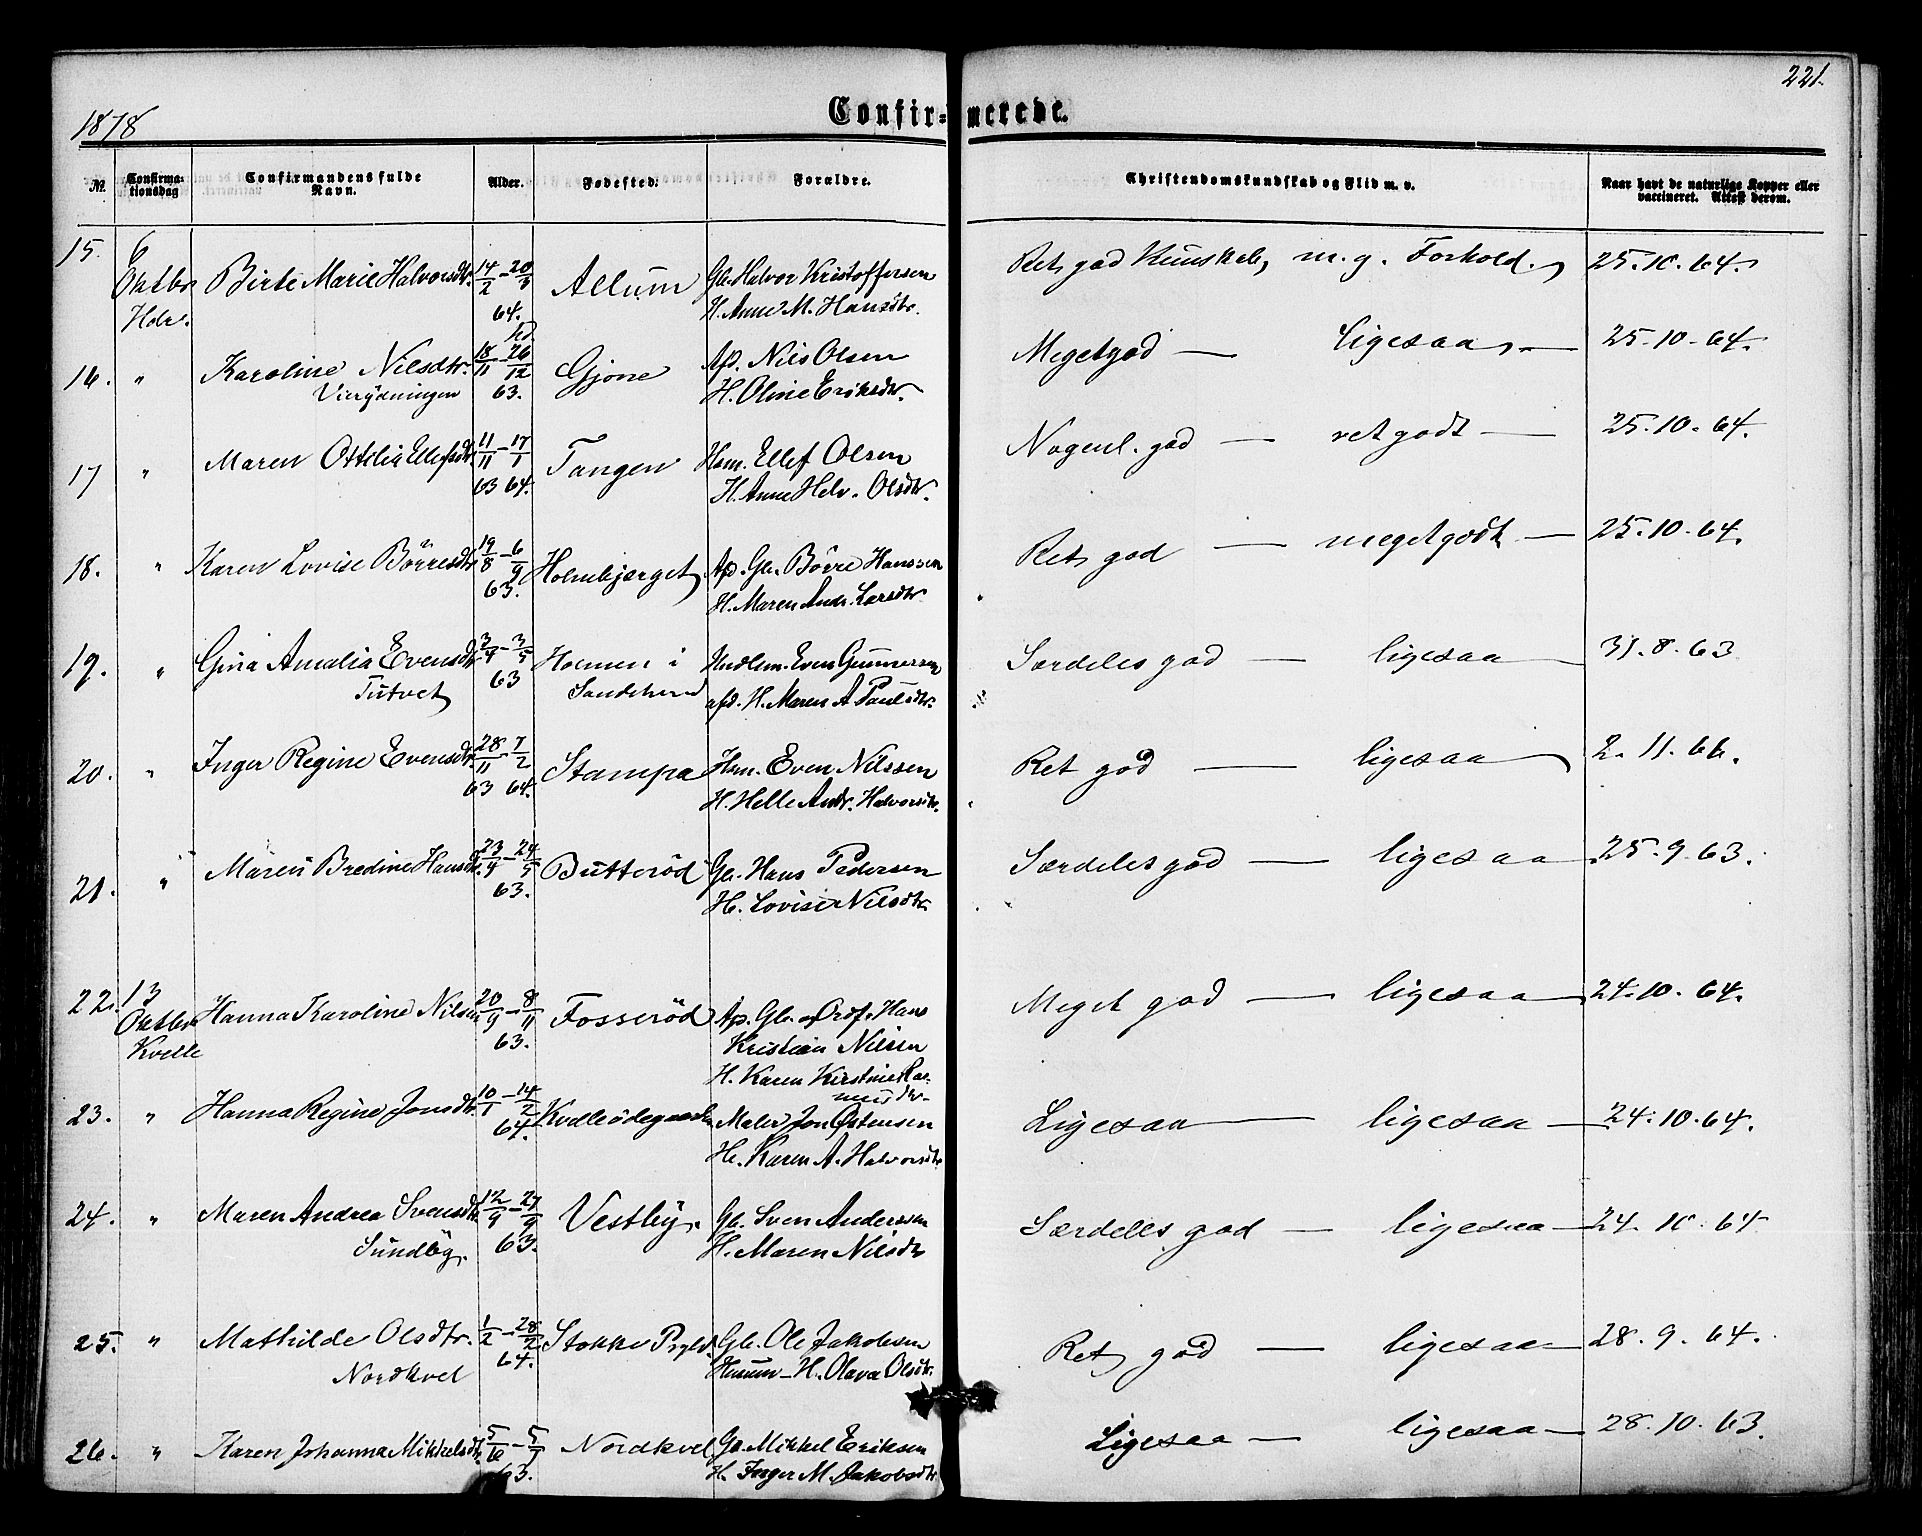 221.
1878
Confir= merede.
№ Confirma-tionsdag Confirmandens fulde Navn. Alder. Fødested. Forældre. Christendomskundskab og Flid m. v. Naar havt de naturlige Kopper eller vaccineret. Attest derom.
15. 6 Oktbr Birte Marie Halvorsdtr. 14/2 - 20/3 64. Allum Gb. Halvor Kristoffersen Ret god Kunskab, m. g. Forhold. 25.10.64.
H. Anne M. Hansdtr.
16. " Karoline Nilsdtr. 18/11 - 26/12 63. Gjone Ap. Nils Olsen Meget god — ligesaa — 25.10.64.
H. Oline Eriksdtr.
17 " Maren Ottilia Ellefsdtr. 11/11 - 17/1 63 64. Tangen Hsm. Ellef Olsen Nogenl. god — ret godt — 25.10.64.
H. Anne Helv. Olsdtr.
18. " Karen Lovise Börresdtr 19/8 - 6/9 63. Holmbjerget Ap. Gb. Börre Hanssen Ret god — meget godt — 25.10.64.
H. Maren Andr. Larsdtr
19. " Gina Amalia Evensdtr 3/4 - 3/5 63 Holmen i Even Gunnersen Særdeles god — ligesaa — 31.8.63
Tutvet H. Maren A Paulsdtr.
20. " Inger Regine Evensdtr 28/11 - 7/2 63 64. Stampa Hsm. Even Nilssen Ret god — ligesaa 2.11.66.
H. Helle Andr. Halvorsdtr.
21. " Maren Bredine Hansdtr. 23/4 - 24/5 63. Butteröd Gb. Hans Pedersen Særdeles god — ligesaa 25.9.63.
H. Lovise Nilsdtr.
22. 13 Oktbr Kvelle Hanna Karoline Nilsen 20/9 - 8/11 63. Fosseröd Ap. Gb. Hans Meget god — ligesaa — 24.10.64.
Kristian Nilsen
H. Karen Kirstine Rasmusdtr.
23. " Hanna Regine Jonsdtr. 10/1 - 14/2 64. Kvelleödegaarden Maler Jon Østensen Ligesaa — ligesaa — 24.10.64.
H. Karen A. Halvorsdtr
24. " Maren Andrea Svensdtr. 12/9 - 27/9 63. Vestby. Gb. Sven Anderssen Særdeles god — ligesaa — 24.10.64
H. Maren Nilsdtr
25. " Mathilde Olsdtr. 1/2 - 28/2 64. Stokke Pgld. Gb. Ole Jakobsen Ret god — ligesaa — 28.9.64.
Nordkvel H. Olava Olsdtr.
26. " Karen Johanna Mikkelsdtr. 5/6 - 5/7 63. Nordkvel Gb. Mikkel Eriksen Ligesaa — ligesaa — 28.10.63.
H. Inger M. Jakobsdtr